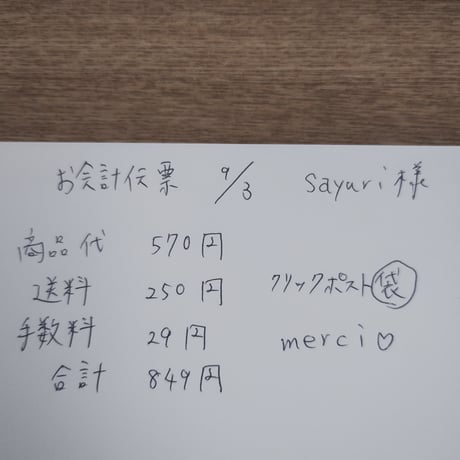 お会計伝票 9/3 sayuri様
商品代 570円
送料 250円 クリックポスト袋
手数料 29円 merci♡
合計 849円